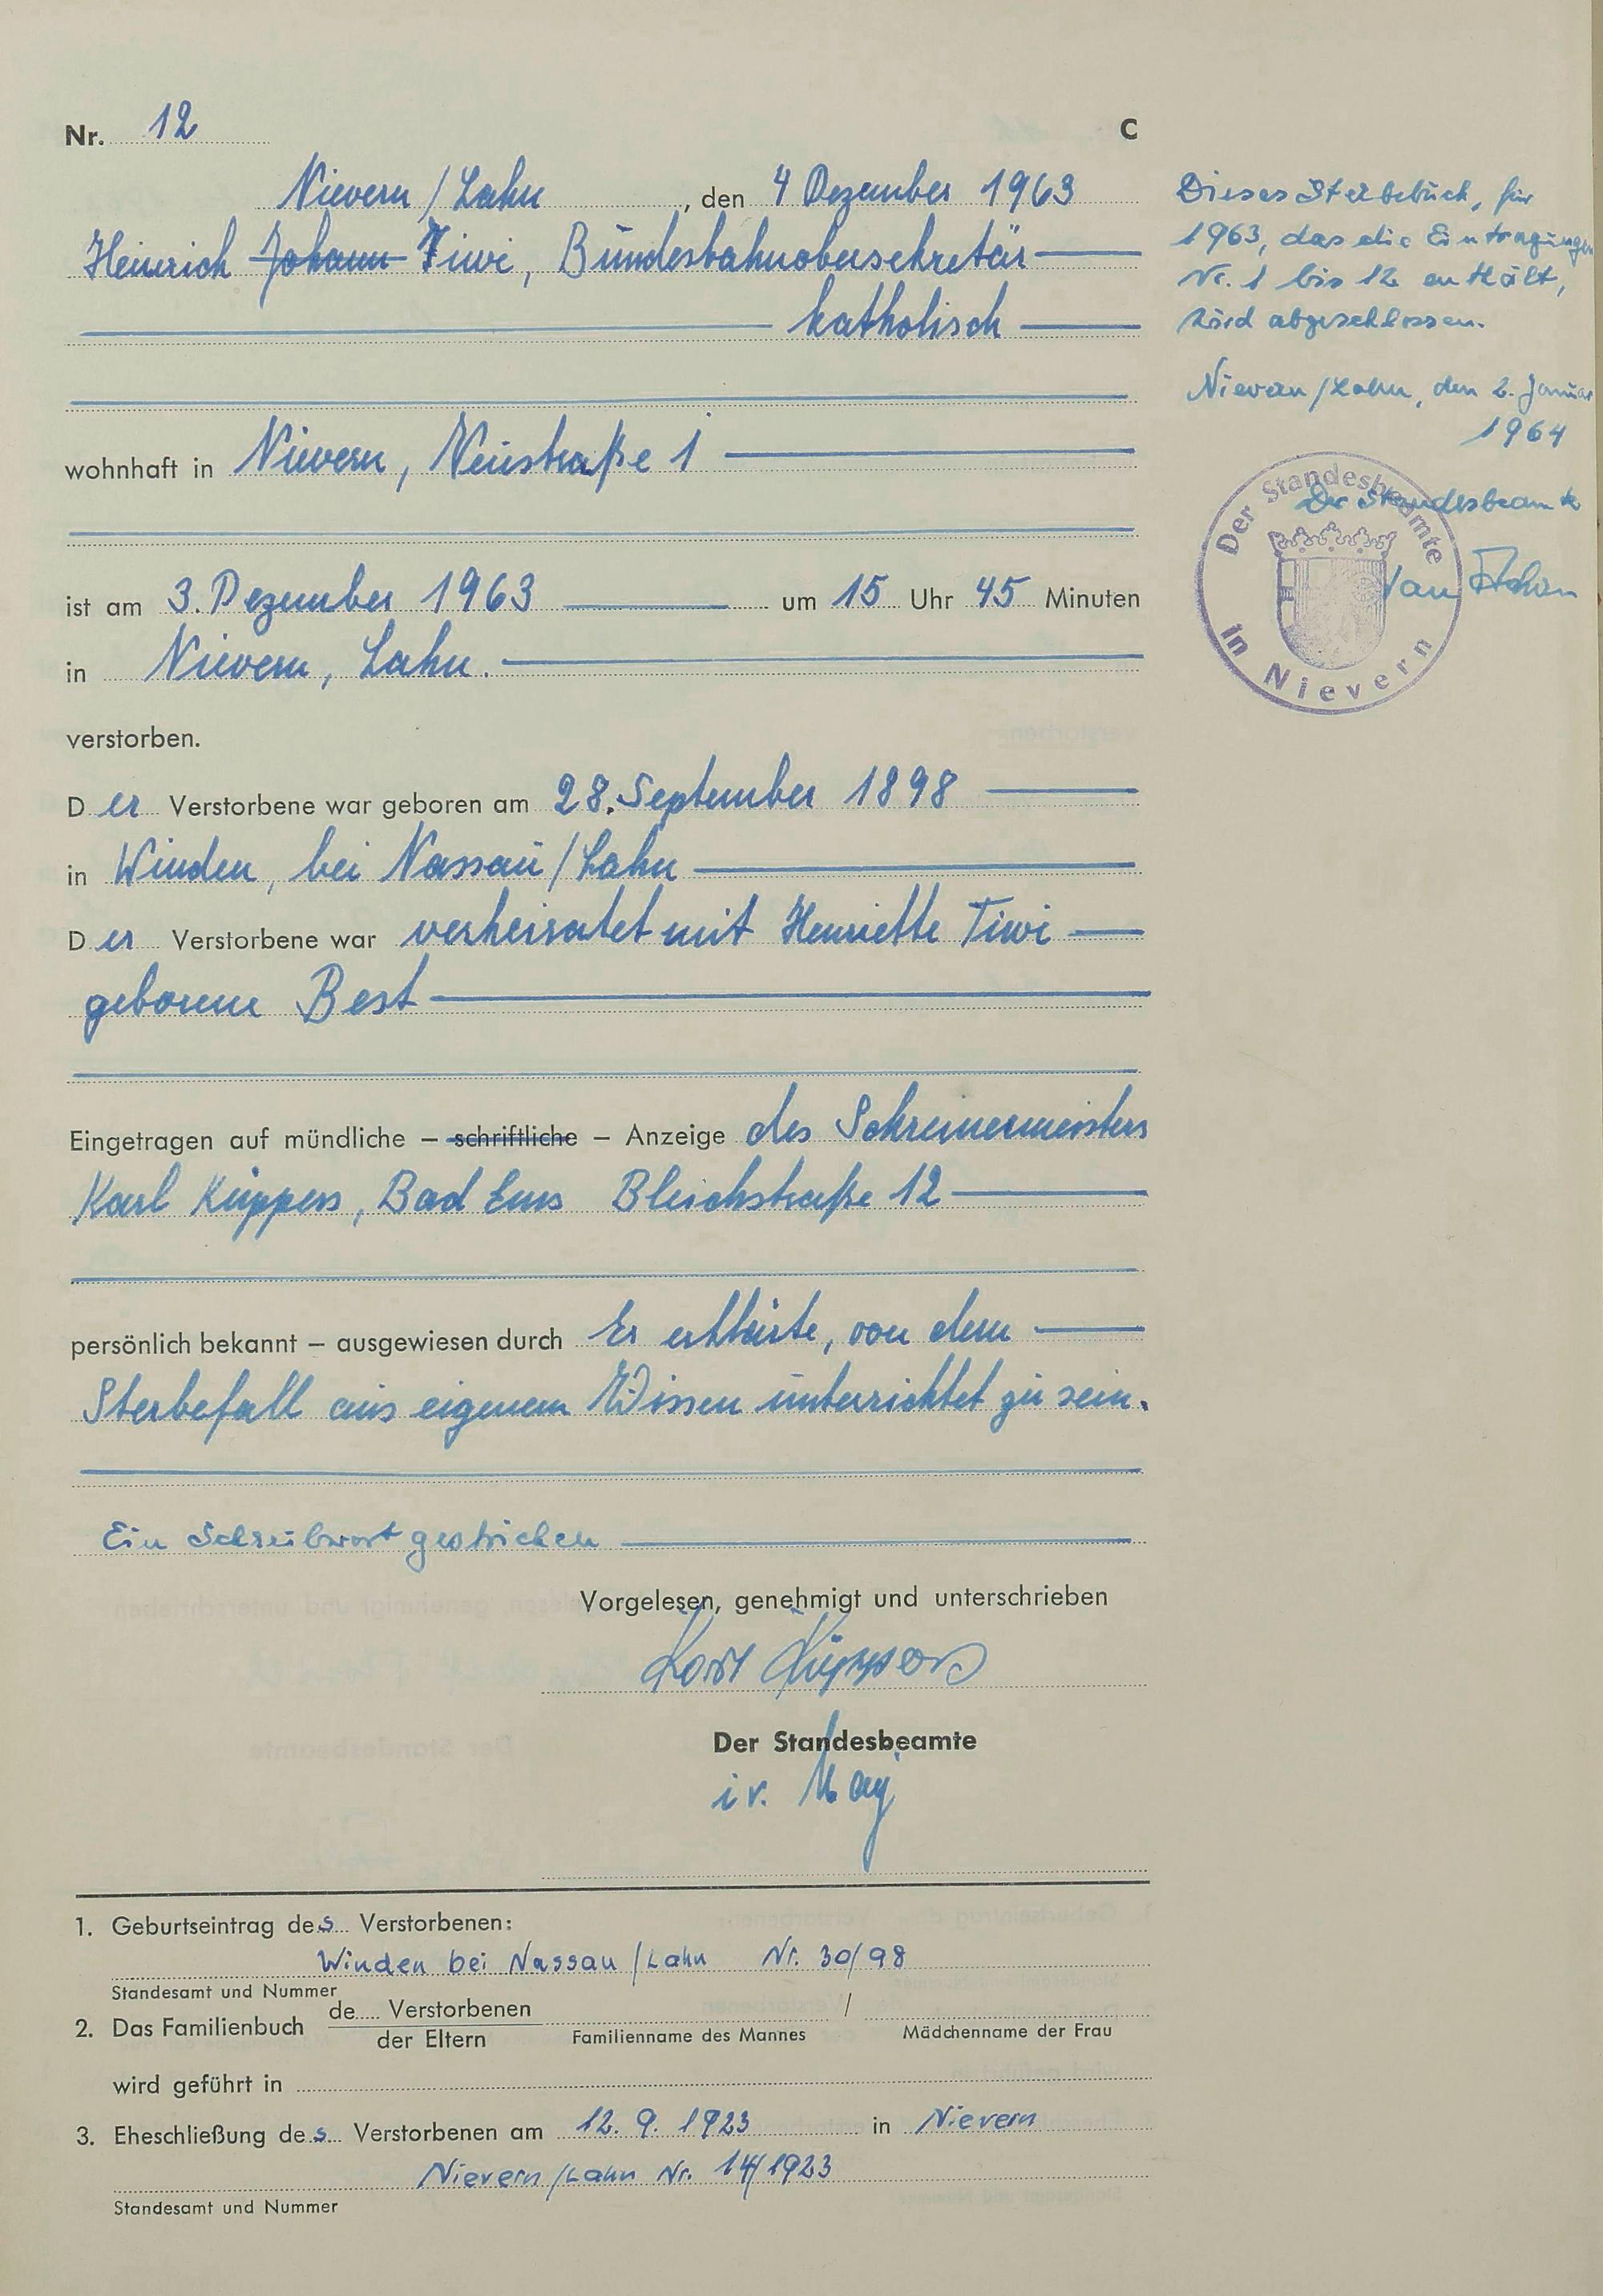 Nr. 12
C
Nievern / Lahn, den 4 Dezember 1963
Heinrich Johann Tiwi, Bundesbahnobersekretär
katholisch
wohnhaft in Nievern, Neustraße 1
ist am 3. Dezember 1963 um 15 Uhr 45 Minuten
in Nievern, Lahn.
verstorben.
Der Verstorbene war geboren am 28. September 1898
in Winden, bei Nassau/Lahn
Der Verstorbene war verheiratet mit Henriette Tiwi
geborene Best
Eingetragen auf mündliche – schriftliche – Anzeige des Schreinermeisters
Karl Küppers, Bad Ems Bleichstraße 12
persönlich bekannt – ausgewiesen durch Er erklärte, von dem
Sterbefall aus eigenem Wissen unterrichtet zu sein.
Ein Schreibwort gestrichen
Vorgelesen, genehmigt und unterschrieben
Karl Küppers
Der Standesbeamte
i.v. May
1. Geburtseintrag des Verstorbenen:
Winden bei Nassau/Lahn Nr. 30/98
Standesamt und Nummer
2. Das Familienbuch de.... Verstorbenen /
der Eltern Familienname des Mannes Mädchenname der Frau
wird geführt in
3. Eheschließung des Verstorbenen am 12. 9. 1923 in Nievern
Nievern/Lahn Nr. 14/1923
Standesamt und Nummer
Dieses Sterbebuch, für
1963, das die Eintragungen
Nr. 1 bis 12 enthält,
wird abgeschlossen.
Nievern/Lahn, den 2. Januar
1964
Der Standesbeamte
Der Standesbeamte
in Nievern